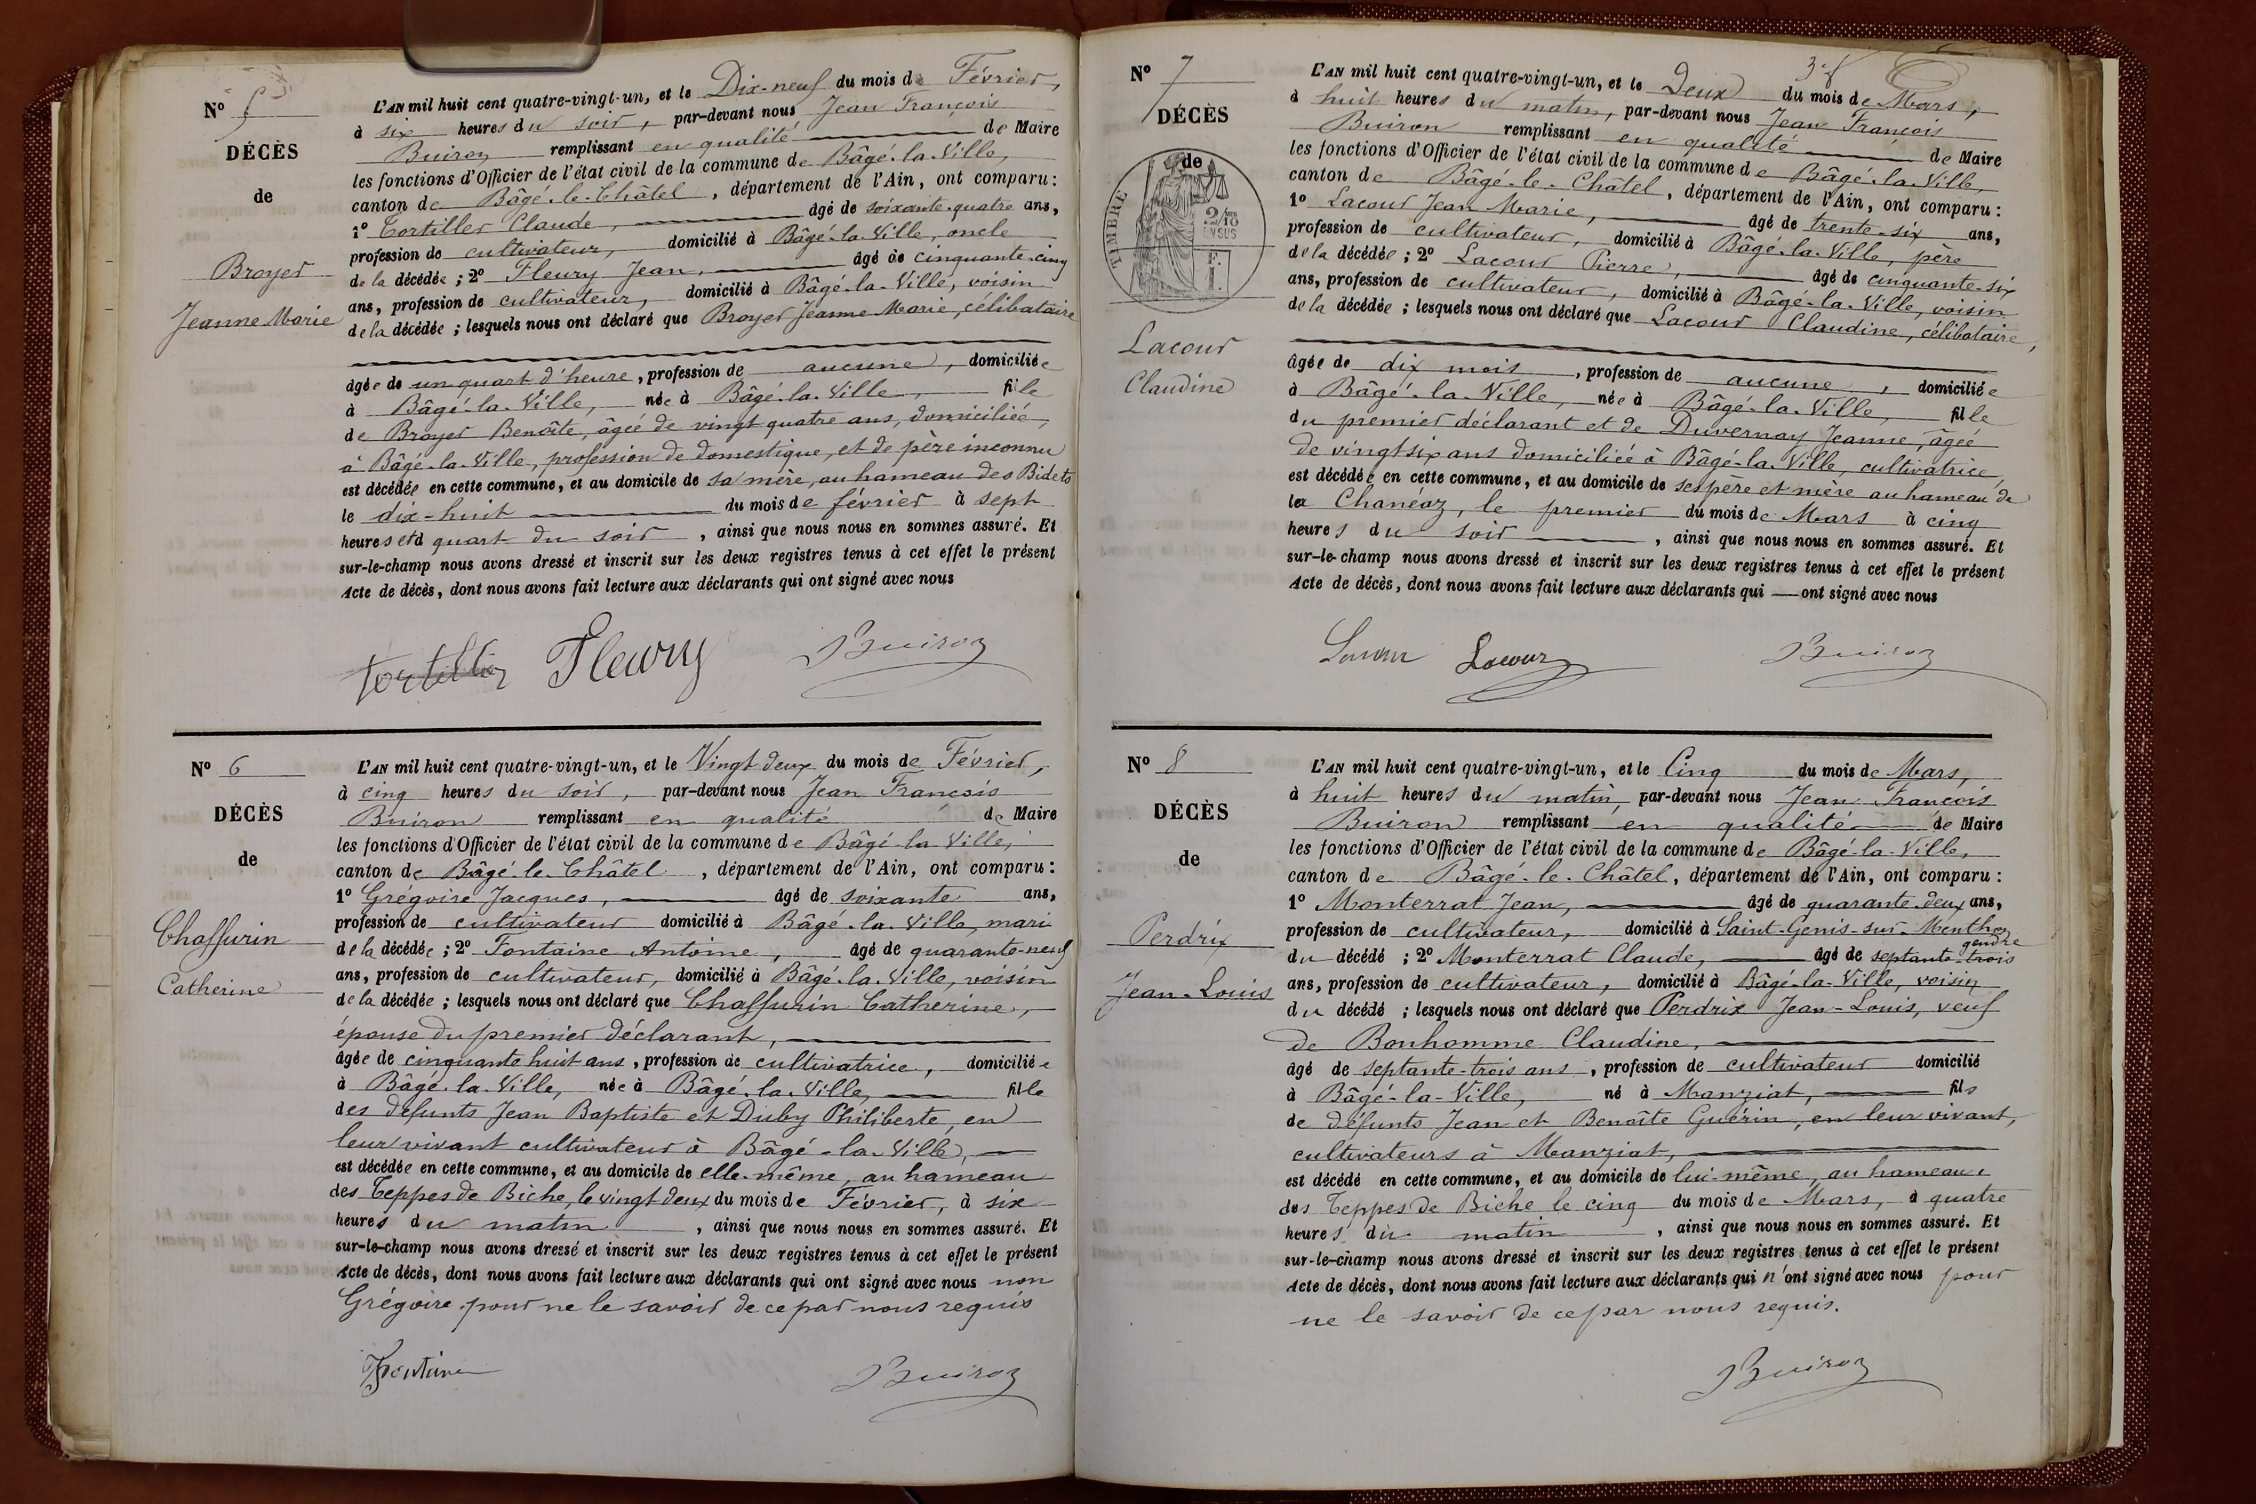 N° 5
DÉCÈS
de
Broyer
Jeanne Marie
L'AN mil huit cent quatre-vingt-un, et le Dix-neuf du mois de Février,
à six heures du soir, par-devant nous Jean François
Buiron remplissant en qualité de Maire
les fonctions d'Officier de l'état civil de la commune de Bâgé-la-Ville,
canton de Bâgé-le-Châtel, département de l'Ain, ont comparu :
1° Tortiller Claude, âgé de soixante-quatre ans,
profession de cultivateur, domicilié à Bâgé-la-Ville, oncle
de la décédée ; 2° Fleury Jean, âgé de cinquante-cinq
ans, profession de cultivateur, domicilié à Bâgé-la-Ville, voisin
de la décédée ; lesquels nous ont déclaré que Broyer Jeanne Marie, célibataire
âgée de un quart d'heure, profession de aucune, domiciliée
à Bâgé-la-Ville, née à Bâgé-la-Ville, fille
de Broyer Benoîte, âgée de vingt quatre ans, domiciliée,
à Bâgé-la-Ville, profession de domestique, et de père inconnu
est décédée en cette commune, et au domicile de sa mère, au hameau des Bidets
le dix-huit du mois de février à sept
heures et d quart du soir, ainsi que nous nous en sommes assuré. Et
sur-le-champ nous avons dressé et inscrit sur les deux registres tenus à cet effet le présent
Acte de décès, dont nous avons fait lecture aux déclarants qui ont signé avec nous
Tortiller Fleury Buiron
N° 6
DÉCÈS
de
Chaffurin
Catherine
L'AN mil huit cent quatre-vingt-un, et le Vingt deux du mois de Février,
à cinq heures du soir, par-devant nous Jean François
Buiron remplissant en qualité de Maire
les fonctions d'Officier de l'état civil de la commune de Bâgé-la-Ville,
canton de Bâgé-le-Châtel, département de l'Ain, ont comparu :
1° Grégoire Jacques, âgé de soixante ans,
profession de cultivateur domicilié à Bâgé-la-Ville, mari
de la décédée ; 2° Fontaine Antoine, âgé de quarante-neuf
ans, profession de cultivateur, domicilié à Bâgé-la-Ville, voisin
de la décédée ; lesquels nous ont déclaré que Chaffurin Catherine,
épouse du premier déclarant,
âgée de cinquante huit ans, profession de cultivatrice, domiciliée
à Bâgé-la-Ville, née à Bâgé-la-Ville, fille
des défunts Jean Baptiste et Duby Philiberte, en
leur vivant cultivateur à Bâgé-la-Ville,
est décédée en cette commune, et au domicile de elle-même, au hameau
des Teppes de Biche, le vingt deux du mois de Février, à six
heures du matin, ainsi que nous nous en sommes assuré. Et
sur-le-champ nous avons dressé et inscrit sur les deux registres tenus à cet effet le présent
Acte de décès, dont nous avons fait lecture aux déclarants qui ont signé avec nous non
Grégoire pour ne le savoir de ce par nous requis
Fontaine Buiron
N° 7
DÉCÈS
de
TIMBRE
Lacour
Claudine
L'AN mil huit cent quatre-vingt-un, et le Deux du mois de Mars,
à huit heures du matin, par-devant nous Jean François
Buiron remplissant en qualité de Maire
les fonctions d'Officier de l'état civil de la commune de Bâgé-la-Ville,
canton de Bâgé-le-Châtel, département de l'Ain, ont comparu :
1° Lacour Jean Marie, âgé de trente-six ans,
profession de cultivateur, domicilié à Bâgé-la-Ville, père
de la décédée ; 2° Lacour Pierre, âgé de cinquante-six
ans, profession de cultivateur, domicilié à Bâgé-la-Ville, voisin
de la décédée ; lesquels nous ont déclaré que Lacour Claudine, célibataire,
âgée de dix mois, profession de aucune, domiciliée
à Bâgé-la-Ville, née à Bâgé-la-Ville, fille
du premier déclarant et de Duvernay Jeanne, âgée
de vingt six ans domiciliée à Bâgé-la-Ville, cultivatrice,
est décédée en cette commune, et au domicile de ses père et mère au hameau de
la Chanéaz, le premier du mois de Mars à cinq
heures du soir, ainsi que nous nous en sommes assuré. Et
sur-le-champ nous avons dressé et inscrit sur les deux registres tenus à cet effet le présent
Acte de décès, dont nous avons fait lecture aux déclarants qui ont signé avec nous
Lacour Lacour Buiron
N° 8
DÉCÈS
de
Perdrix
Jean-Louis
L'AN mil huit cent quatre-vingt-un, et le Cinq du mois de Mars,
à huit heures du matin, par-devant nous Jean François
Buiron remplissant en qualité de Maire
les fonctions d'Officier de l'état civil de la commune de Bâgé-la-Ville,
canton de Bâgé-le-Châtel, département de l'Ain, ont comparu :
1° Monterrat Jean, âgé de quarante-deux ans,
profession de cultivateur, domicilié à Saint-Genis-sur-Menthon
gendre
du décédé ; 2° Monterrat Claude, âgé de septante-trois
ans, profession de cultivateur, domicilié à Bâgé-la-Ville, voisin
du décédé ; lesquels nous ont déclaré que Perdrix Jean-Louis, veuf
de Bonhomme Claudine,
âgé de septante-trois ans, profession de cultivateur domicilié
à Bâgé-la-Ville, né à Manziat, fils
de défunts Jean et Benoîte Guérin, en leur vivant,
cultivateurs à Manziat,
est décédé en cette commune, et au domicile de lui-même, au hameau
des Teppes de Biche le cinq du mois de Mars, à quatre
heures du matin, ainsi que nous nous en sommes assuré. Et
sur-le-champ nous avons dressé et inscrit sur les deux registres tenus à cet effet le présent
Acte de décès, dont nous avons fait lecture aux déclarants qui n'ont signé avec nous pour
ne le savoir de ce par nous requis.
Buiron